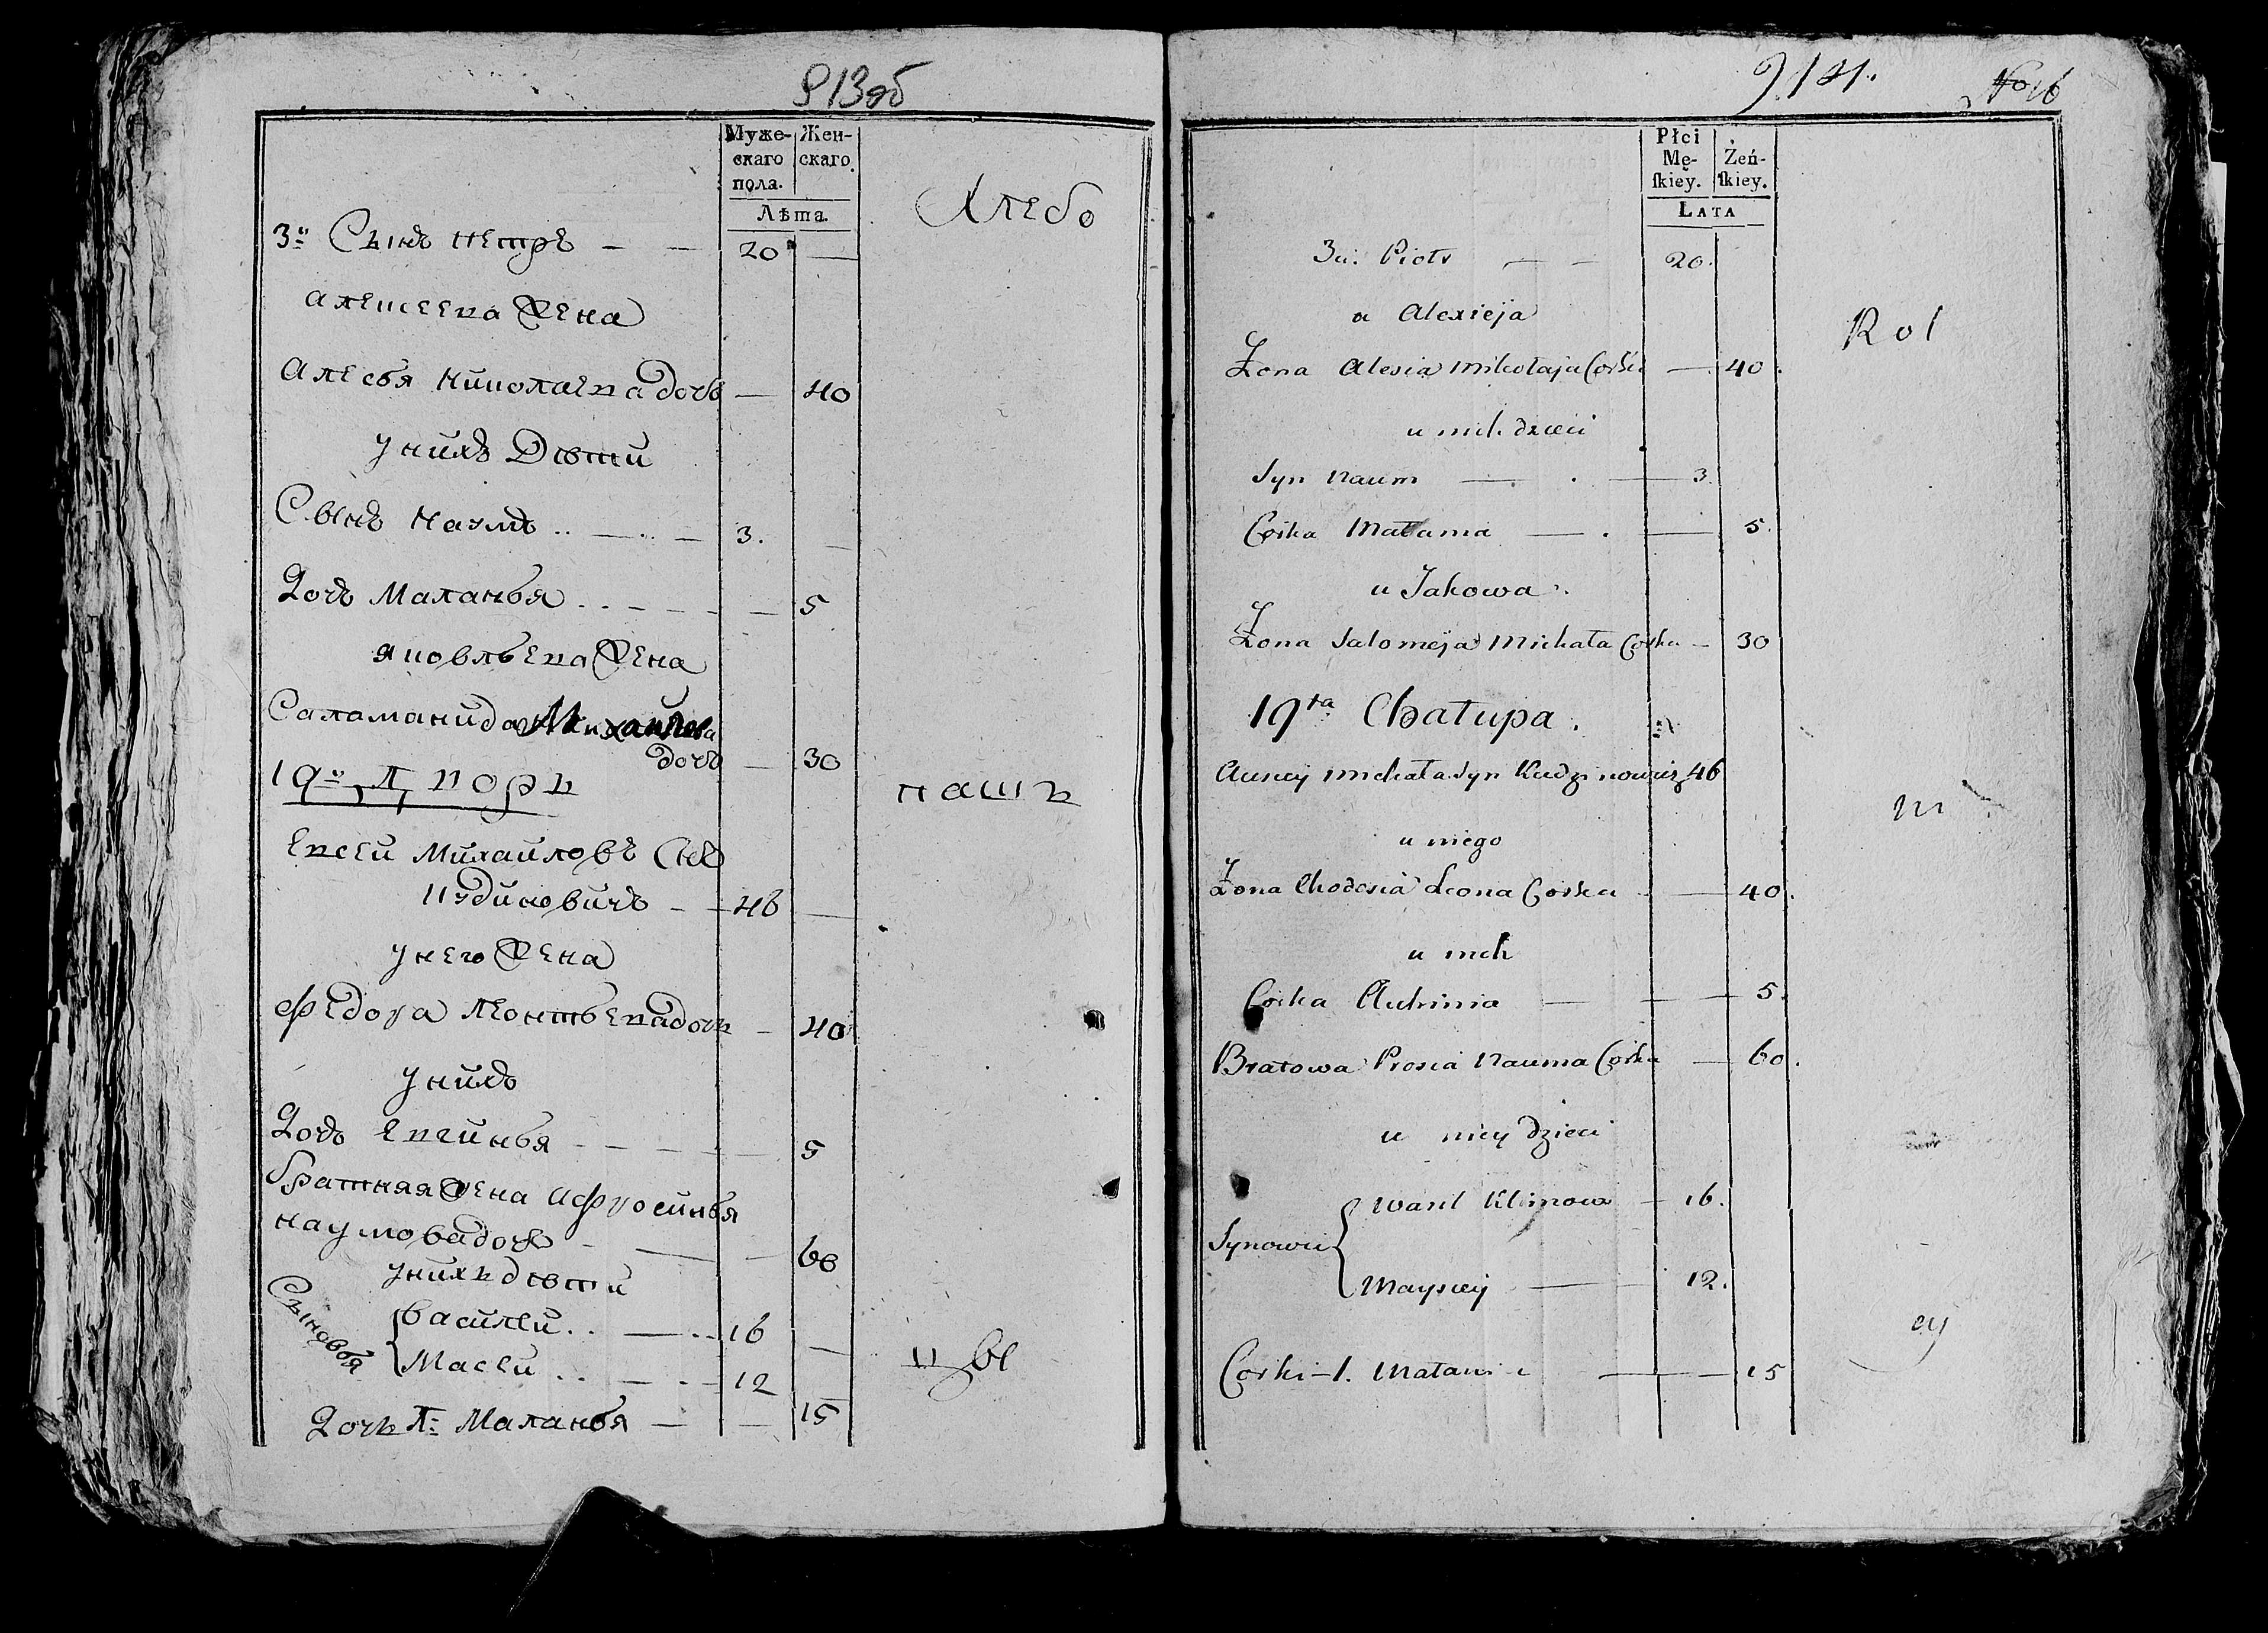 913об
Муже-
скаго
пола.
Жен-
скаго.
Лѣта.
3й Сынъ петръ — — 20 —
Хлебо
алексеева жена
алесья николаева дочь — 40
у нихъ Дѣти
Сынъ наумъ .. — .. — 3. —
Дочь Маланья .. — — — — 5
яковлѣва жена
Саламанида Михайлова
дочь — 30
19й Дворъ
пашъ
Евсей Михайловъ Снъ
кудиновичъ — 46 —
у него жена
Федора леонтьева дочъ — 40
у нихъ
Дочь Евгинья — — — — — 5
братняя жена афросинья
наумова дочь — — — 60
у нихъ дѣти
Сыновья
Василей .. — .. 16 —
Масей .. — . — 12
цы
Дочъ 1: Маланья — — 15
914.
№ 16
Płci
Mę-
ſkiey.
Żeń-
ſkiey.
LATA
3ci. Piotr — — 20.
u Alexieja
Rol
Żona Alesia Mikołaja Corka — 40.
u nich dzieci
Syn Naum — . — 3.
Corka Małania — . — 5.
u Jakowa.
Żona Salomeja Michała Corka — 30
19ta Chałupa.
Auscy Michała Syn Kudzinowicz 46
ni
u niego
Żona Chodosia Leona Corka — 40.
u nich
Corka Auhinia — — — 5.
Bratowa Prosia Nauma Corka — 60.
u niey dzieci
Synowie
Wasil Klimowa — 16.
Maysiey — 12.
cy
Corki — 1. Małania — — 15